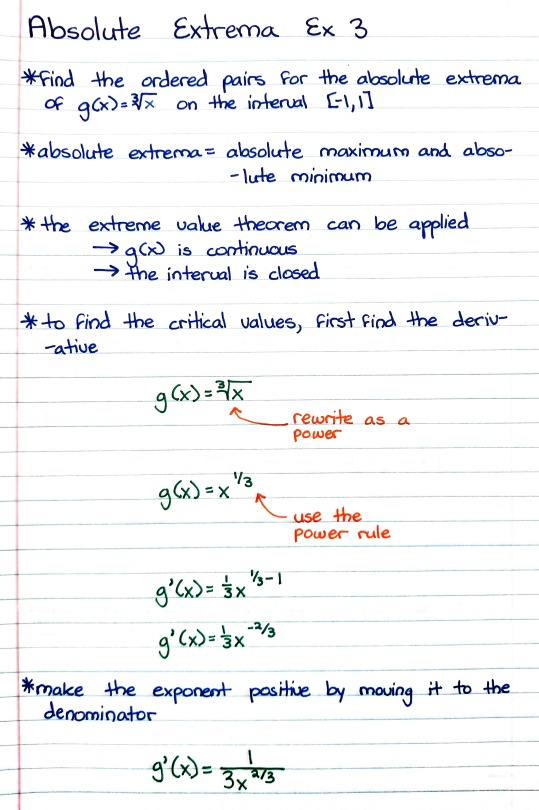 Absolute Extrema Ex 3
*find the ordered pairs for the absolute extrema
of g(x)=∛x on the interval [-1,1]
*absolute extrema= absolute maximum and abso-
-lute minimum
*the extreme value theorem can be applied
→ g(x) is continuous
→ the interval is closed
*to find the critical values, first find the deriv-
-ative
g(x)=∛x
rewrite as a
power
g(x)=x^1/3
use the
power rule
g'(x)=1/3x^1/3-1
g'(x)=1/3x^-2/3
*make the exponent positive by moving it to the
denominator
g'(x)=1/3x^2/3